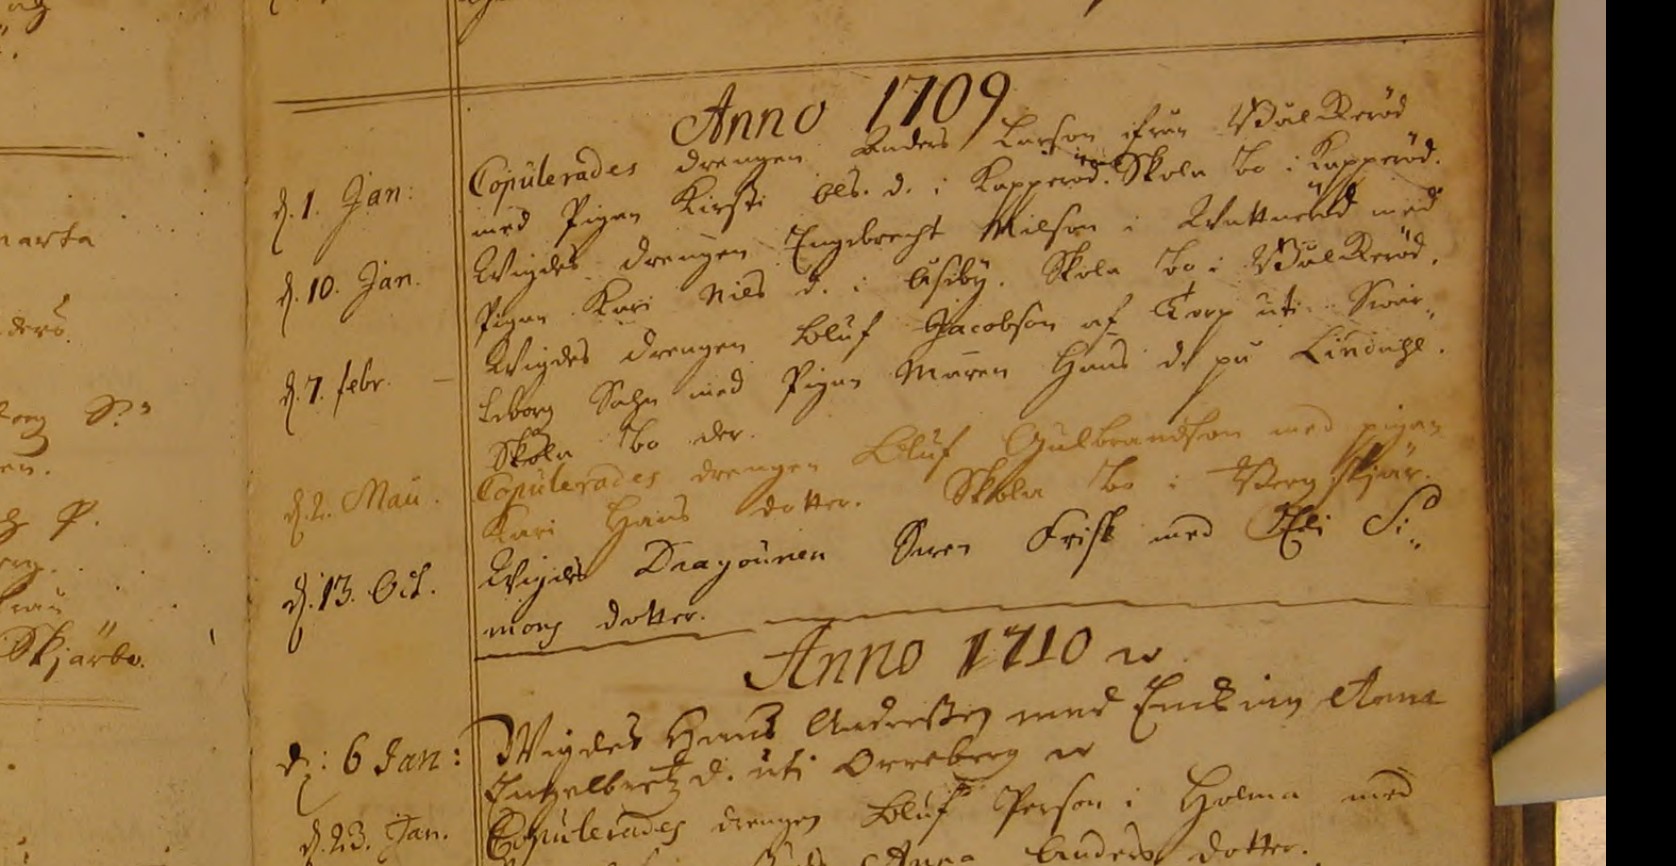 Anno 1709
d. 1. Jan: Copulerades drengen Anders Larson ifrån
med Pigan Kirsti Ols. d. i Kapperöd. Skola bo i Kapperöd.
d. 10. Jan. Wigdes drengen Engebrecht Nilson i med
Pigan Kari Niels d. i Åseby. Skola bo i
d. 7. febr. Wigdes drengen Oluf Jacobson af Torp uti Swar„
teborg Sokn med Pigan Maren Hans d. på Lindahl.
Skola bo der.
d. 2. Maii. Copulerades drengen Oluf Gulbrandson med pigan
Kari Hans dotter. Skola bo i Berg Skjär.
d. 13. Oct. Wigdes Dragounen Swen Frisk med Eli Si„
mons dotter.
Anno 1710
d: 6 Jan: Wigdes Hans Anderssen med Enckian Anna
Ingelbretz d. uti Orreberg
d. 23. Jan. Copulerades drengen Oluf Person i Holma med
Anna Anders dotter.
marta
ders.
en.
Skjärbo.